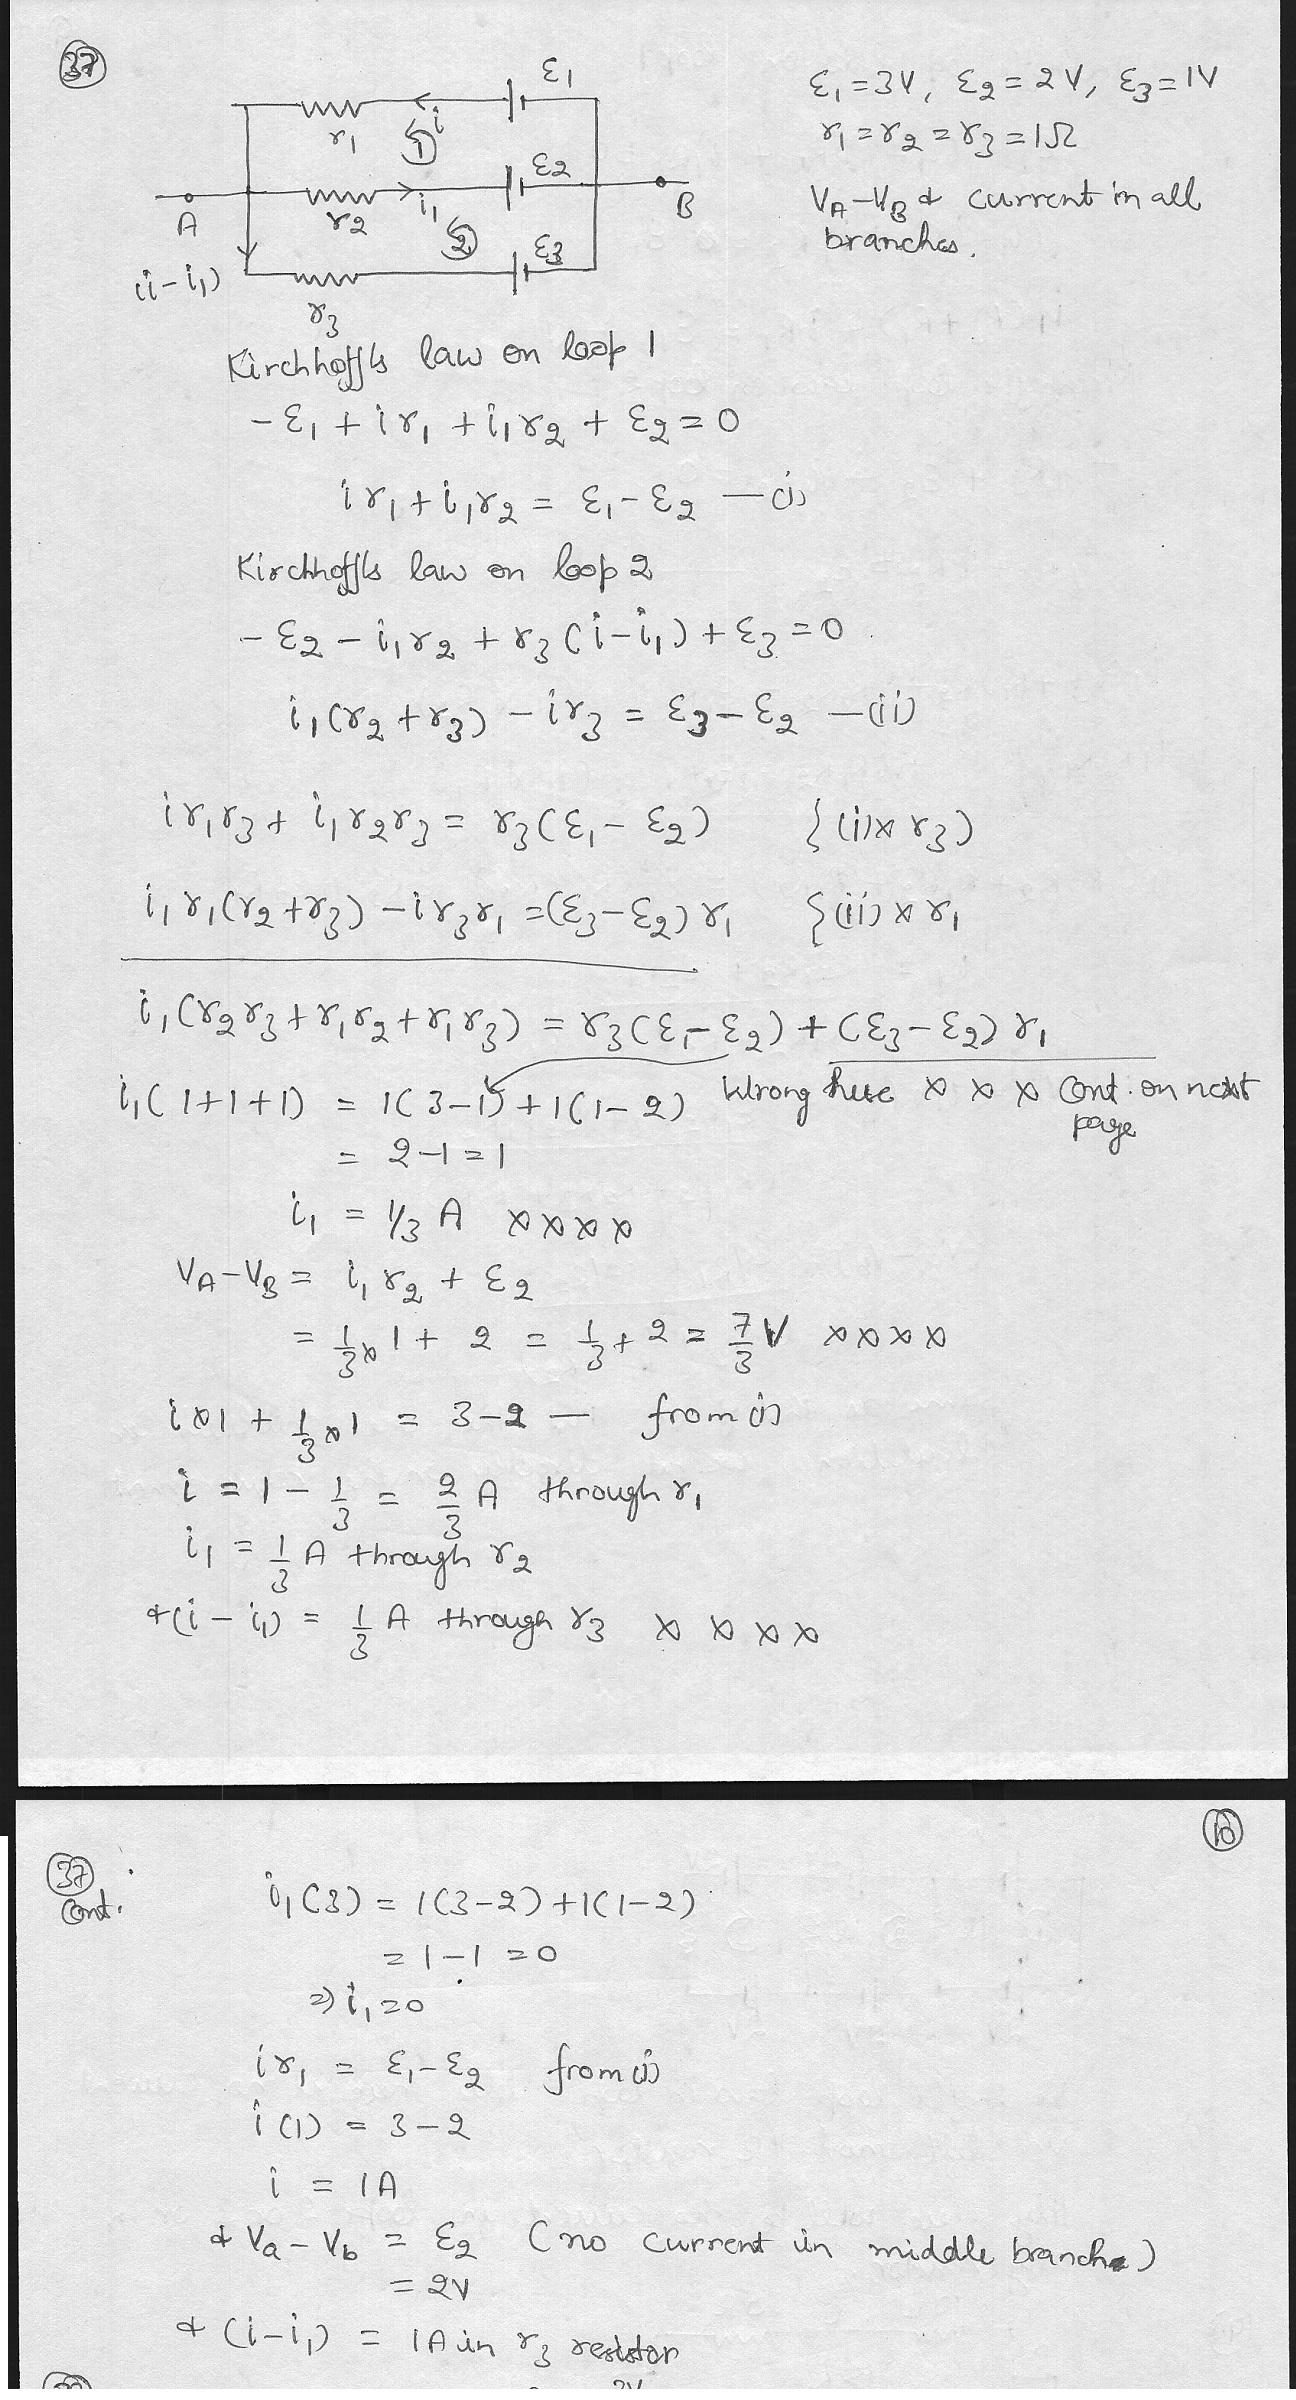 37
ε1
r1
i
1
ε2
A
r2
i1
2
B
ε3
(i-i1)
r3
ε1 = 3V, ε2 = 2V, ε3 = 1V
r1 = r2 = r3 = 1Ω
VA-VB & current in all
branches.
Kirchhoff's law on loop 1
-ε1 + ir1 + i1r2 + ε2 = 0
ir1 + i1r2 = ε1 - ε2 —(i)
Kirchhoff's law on loop 2
-ε2 - i1r2 + r3(i-i1) + ε3 = 0
i1(r2+r3) - ir3 = ε3 - ε2 —(ii)
ir1r3 + i1r2r3 = r3(ε1 - ε2) {(i) x r3)
i1r1(r2+r3) - ir3r1 = (ε3-ε2)r1 {(ii) x r1
i1(r2r3 + r1r2 + r1r3) = r3(ε1-ε2) + (ε3-ε2)r1
i1(1+1+1) = 1(3-1) + 1(1-2) Wrong here x x x Cont. on next
page
= 2-1 = 1
i1 = 1/3 A x x x x
VA-VB = i1r2 + ε2
= 1/3 x 1 + 2 = 1/3 + 2 = 7/3 V x x x x
i x 1 + 1/3 x 1 = 3-2 — from (i)
i = 1 - 1/3 = 2/3 A through r1
i1 = 1/3 A through r2
&(i-i1) = 1/3 A through r3 x x x x
10
37
Cont.
i1(3) = 1(3-2) + 1(1-2)
= 1-1 = 0
⇒ i1 = 0
ir1 = ε1-ε2 from (i)
i(1) = 3-2
i = 1A
& Va - Vb = ε2 (no current in middle branch)
= 2V
& (i-i1) = 1A in r3 resistor